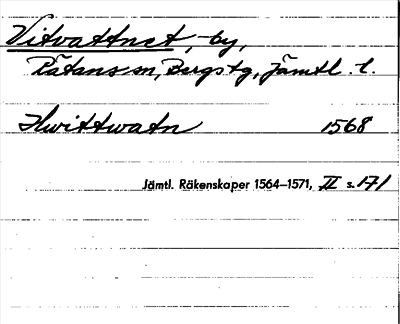 Vitvattnet, by,
Rätans sn, Bergs tg, Jämtl. l.
Hwittwatn 1568
Jämtl. Räkenskaper 1564–1571, II s. 171